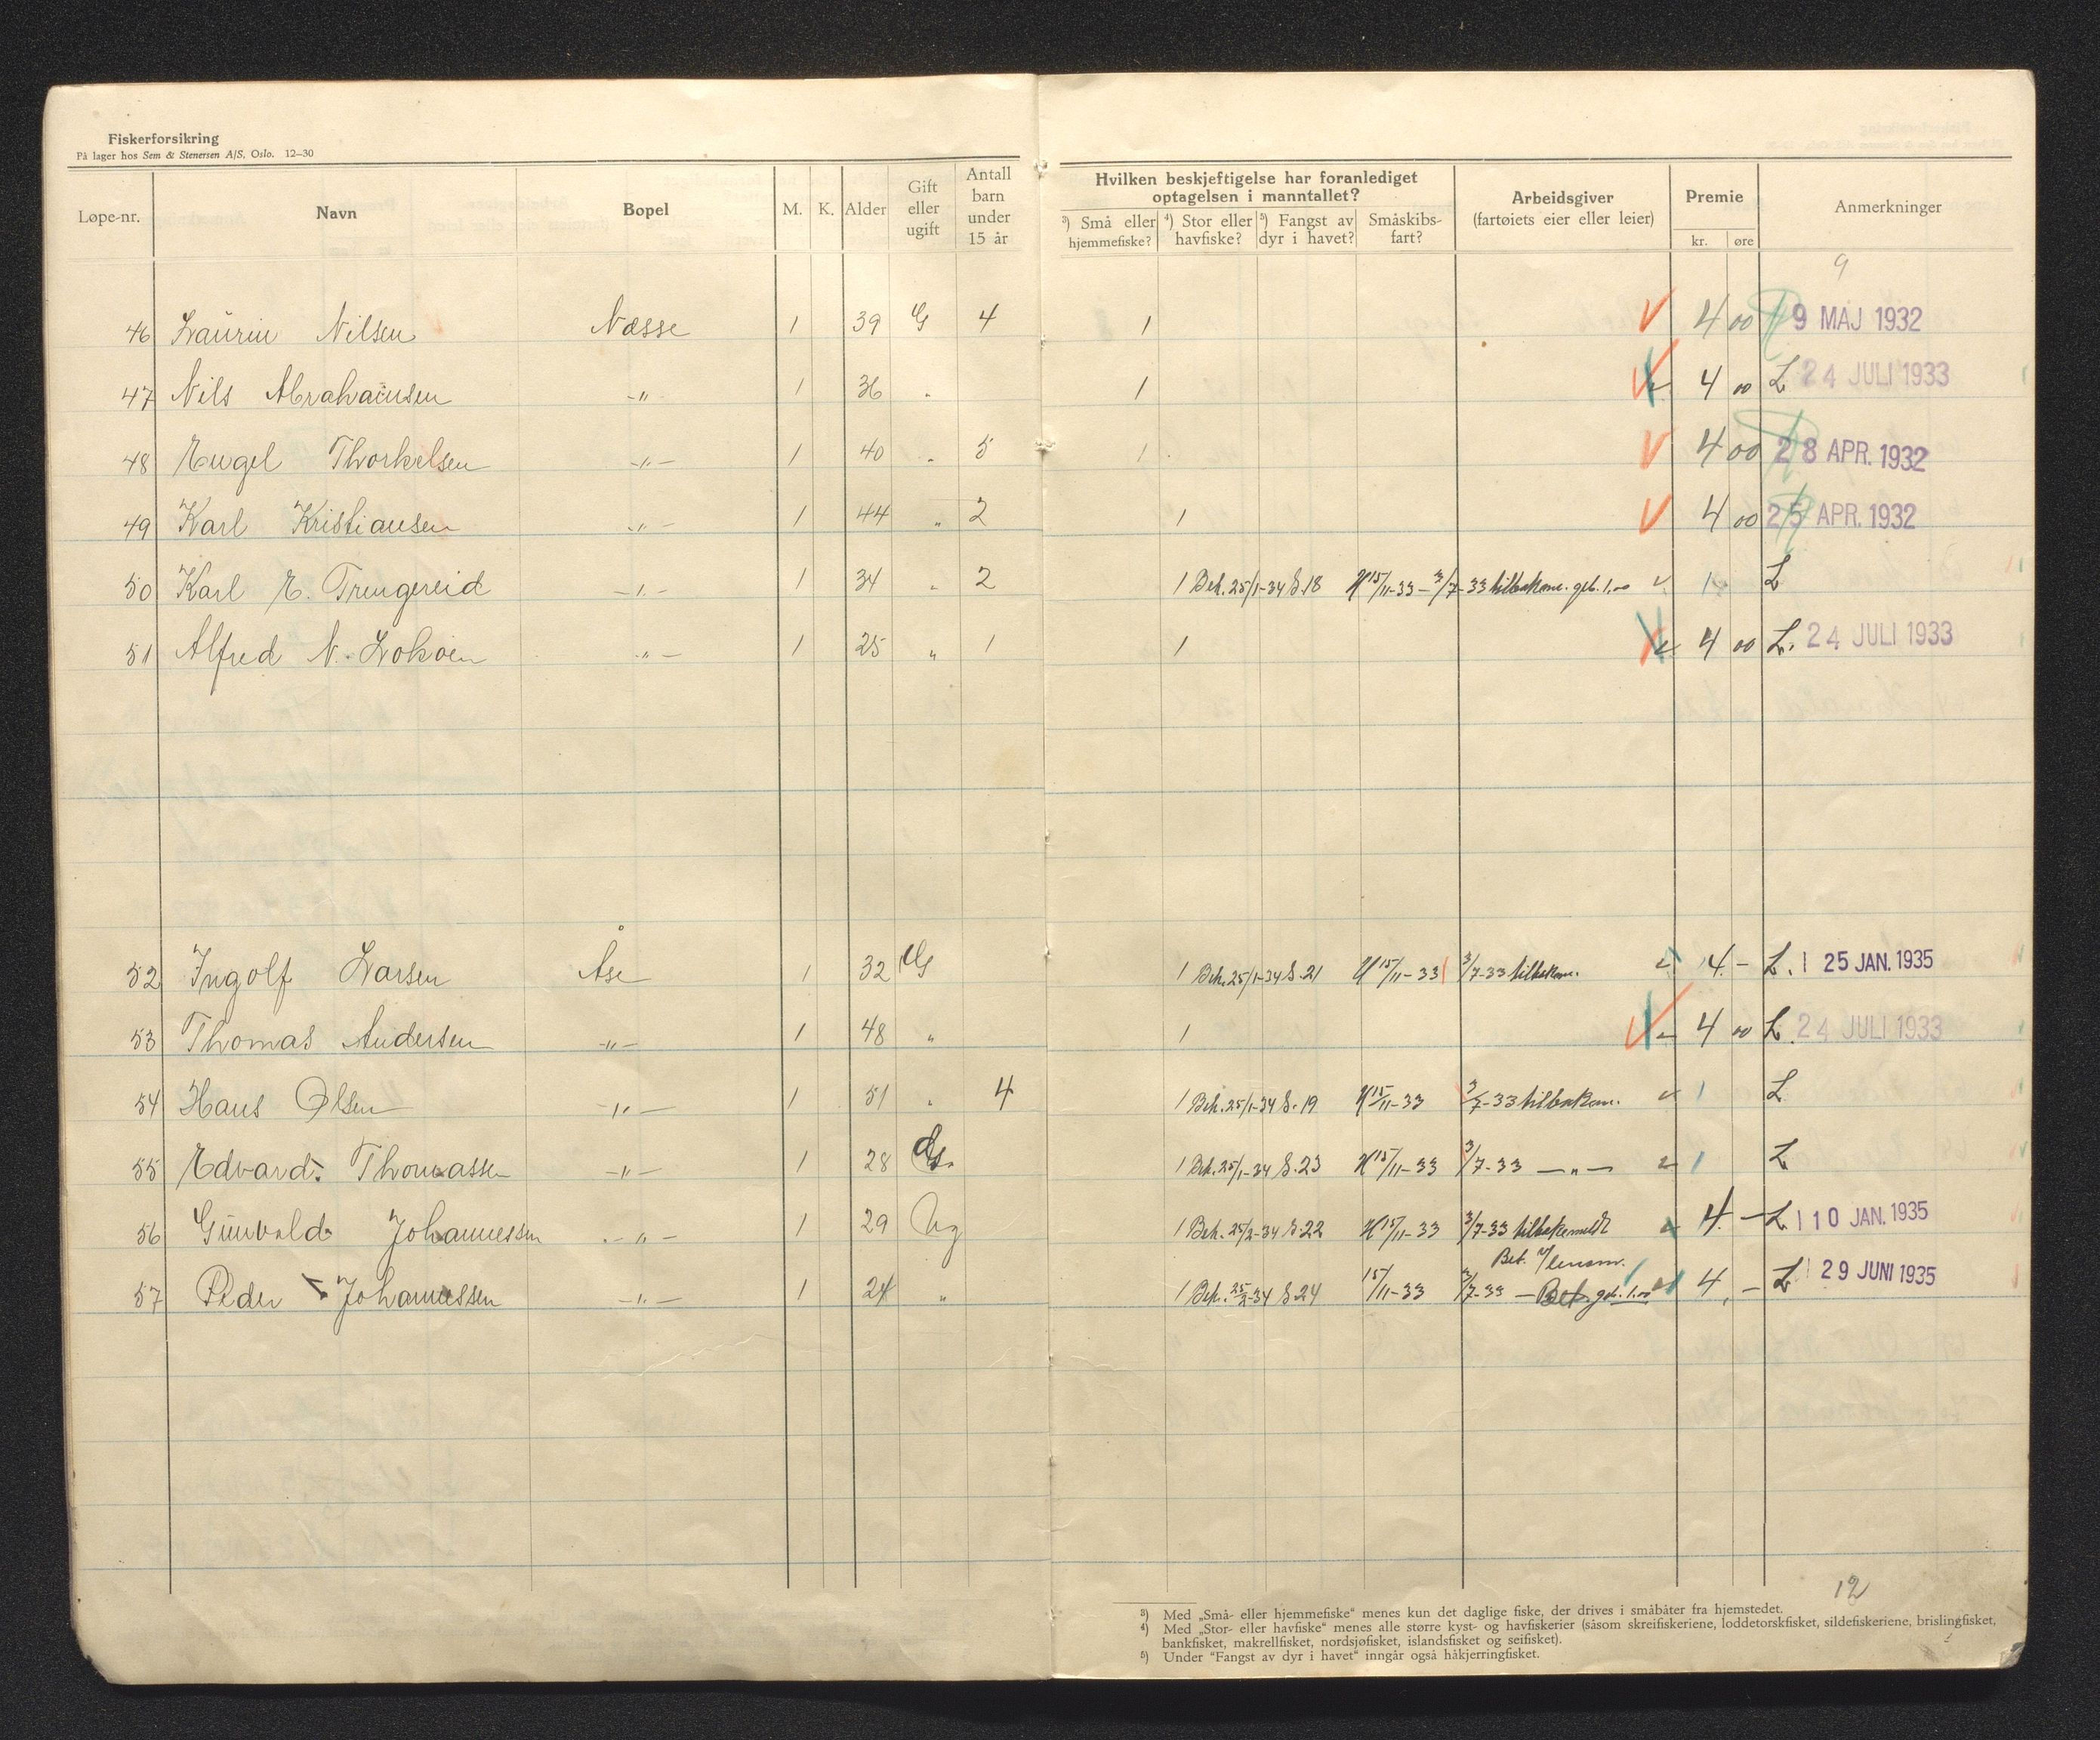 Fiskerforsikring
På lager hos Sem & Stenersen A/S, Oslo. 12–30
Løpe-nr. Navn Bopel M. K. Alder Gift eller ugift Antall barn under 15 år
Hvilken beskjeftigelse har foranlediget optagelsen i manntallet?
³) Små eller hjemmefiske? ⁴) Stor eller havfiske? ⁵) Fangst av dyr i havet? Småskibsfart?
Arbeidsgiver (fartøiets eier eller leier) Premie kr. øre Anmerkninger
9
46 Laurin Nilsen Næsse 1 39 G 4 1 4 00 9 MAJ 1932
47 Nils Abrahamsen -"- 1 36 " 1 4 00 L 24 JULI 1933
48 Engel Thorkelsen -"- 1 40 " 5 1 4 00 28 APR. 1932
49 Karl Kristiansen -"- 1 44 " 2 1 4 00 25 APR. 1932
50 Karl E. Trengereid -"- 1 34 " 2 1 Beh. 25/1-34 S. 18 U 15/11-33 – 3/7-33 tilbakem. geb. 1.00 1 L
51 Alfred N. Lokøen -"- 1 25 " 1 1 4 00 L. 24 JULI 1933
52 Ingolf Larsen Åse 1 32 G 1 Beh. 25/1-34 S. 21 U 15/11-33 3/7-33 tilbakem. 4.- L. 25 JAN. 1935
53 Thomas Andersen -"- 1 48 " 1 4 00 L. 24 JULI 1933
54 Hans Olsen -"- 1 51 " 4 1 Beh. 25/1-34 S. 19 U 15/11-33 3/7-33 tilbakem. 1 L
55 Edvard Thomassen -"- 1 28 G. 1 Beh. 25/1-34 S. 23 U 15/11-33 3/7-33 -"- 1 L
56 Gunvald Johannessen -"- 1 29 Ug 1 Beh. 25/2-34 S. 22 U 15/11-33 3/7-33 tilbakemeldt 4.- L 10 JAN. 1935
Bet. lensm.
57 Peder Johannessen -"- 1 24 " 1 Beh. 25/2-34 S. 24 15/11-33 3/7-33 – Bet. geb. 1.00 4.- L 29 JUNI 1935
12
³) Med „Små- eller hjemmefiske“ menes kun det daglige fiske, der drives i småbåter fra hjemstedet.
⁴) Med „Stor- eller havfiske“ menes alle større kyst- og havfiskerier (såsom skreifiskeriene, loddetorskfisket, sildefiskeriene, brislingfisket,
bankfisket, makrellfisket, nordsjøfisket, islandsfisket og seifisket).
⁵) Under “Fangst av dyr i havet“ inngår også håkjerringfisket.